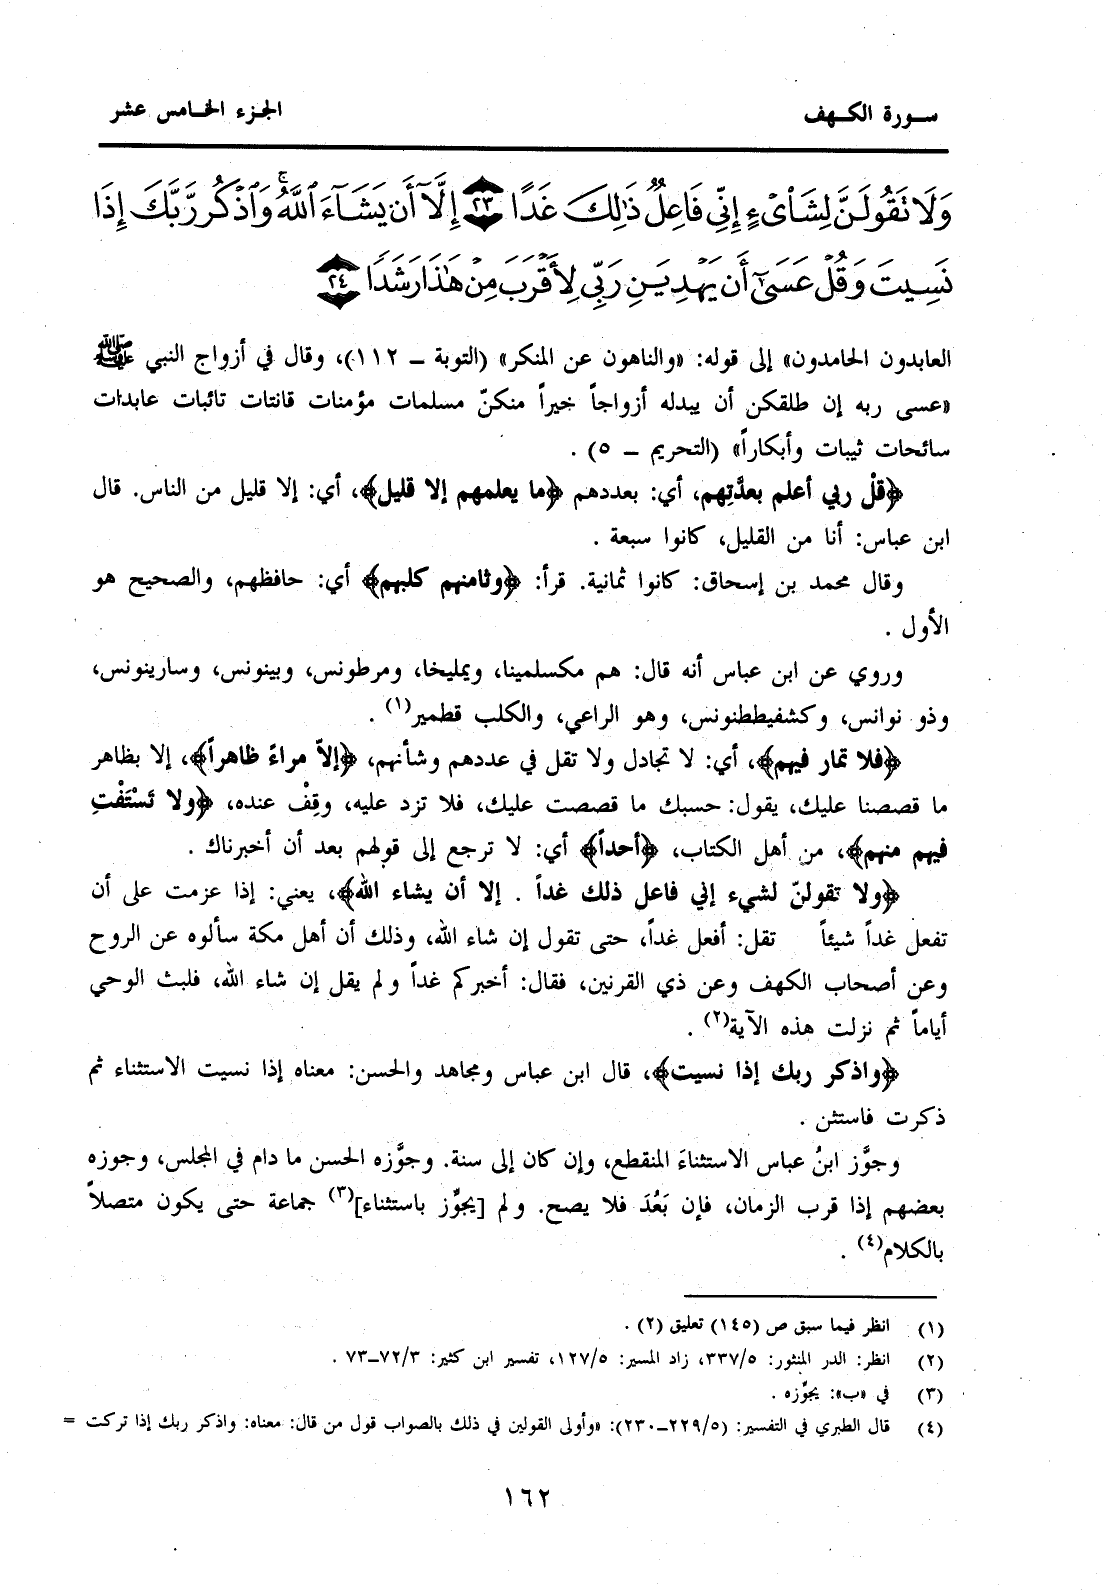 سورة الكهف
الجزء الخامس عشر
وَلَا تَقُولَنَّ لِشَا۟ىْءٍ إِنِّى فَاعِلٌ ذَٰلِكَ غَدًا ٢٣ إِلَّآ أَن يَشَآءَ ٱللَّهُ ۚ وَٱذْكُر رَّبَّكَ إِذَا
نَسِيتَ وَقُلْ عَسَىٰٓ أَن يَهْدِيَنِ رَبِّى لِأَقْرَبَ مِنْ هَٰذَا رَشَدًا ٢٤
العابدون الحامدون» إلى قوله: «والناهون عن المنكر» (التوبة ـ ١١٢)، وقال في أزواج النبي ﷺ
«عسى ربه إن طلقكن أن يبدله أزواجاً خيراً منكنّ مسلمات مؤمنات قانتات تائبات عابدات
سائحات ثيبات وأبكاراً» (التحريم ـ ٥) .
﴿قلْ ربي أعلم بعدَّتِهم، أي: بعددهم ﴿ما يعلمهم إلا قليل﴾، أي: إلا قليل من الناس. قال
ابن عباس: أنا من القليل، كانوا سبعة .
وقال محمد بن إسحاق: كانوا ثمانية. قرأ: ﴿وثامنهم كلبهم﴾ أي: حافظهم، والصحيح هو
الأول .
وروي عن ابن عباس أنه قال: هم مكسلمينا، ويمليخا، ومرطونس، وبينونس، وسارينونس،
وذو نوانس، وكشفيططنونس، وهو الراعي، والكلب قطمير(١) .
﴿فلا تمار فيهم﴾، أي: لا تجادل ولا تقل في عددهم وشأنهم، ﴿إلاّ مراءً ظاهراً﴾، إلا بظاهر
ما قصصنا عليك، يقول: حسبك ما قصصت عليك، فلا تزد عليه، وقِفْ عنده، ﴿ولا تَسْتَفْتِ
فيهم منهم﴾، من أهل الكتاب، ﴿أحداً﴾ أي: لا ترجع إلى قولهم بعد أن أخبرناك .
﴿ولا تقولنّ لشيء إني فاعل ذلك غداً . إلا أن يشاء الله﴾، يعني: إذا عزمت على أن
تفعل غداً شيئاً تقل: أفعل غداً، حتى تقول إن شاء الله، وذلك أن أهل مكة سألوه عن الروح
وعن أصحاب الكهف وعن ذي القرنين، فقال: أخبركم غداً ولم يقل إن شاء الله، فلبث الوحي
أياماً ثم نزلت هذه الآية(٢) .
﴿واذكر ربك إذا نسيت﴾، قال ابن عباس ومجاهد والحسن: معناه إذا نسيت الاستثناء ثم
ذكرت فاستثن .
وجوَّز ابنُ عباس الاستثناءَ المنقطع، وإن كان إلى سنة. وجوَّزه الحسن ما دام في المجلس، وجوزه
بعضهم إذا قرب الزمان، فإن بَعُدَ فلا يصح. ولم [يجوِّز باستثناء](٣) جماعة حتى يكون متصلاً
بالكلام(٤) .
(١) انظر فيما سبق ص (١٤٥) تعليق (٢) .
(٢) انظر: الدر المنثور: ٣٣٧/٥، زاد المسير: ١٢٧/٥، تفسير ابن كثير: ٧٢/٣ـ٧٣ .
(٣) في «ب»: يجوِّزه .
(٤) قال الطبري في التفسير: (٢٢٩/٥ـ٢٣٠): «وأولى القولين في ذلك بالصواب قول من قال: معناه: واذكر ربك إذا تركت =
١٦٢